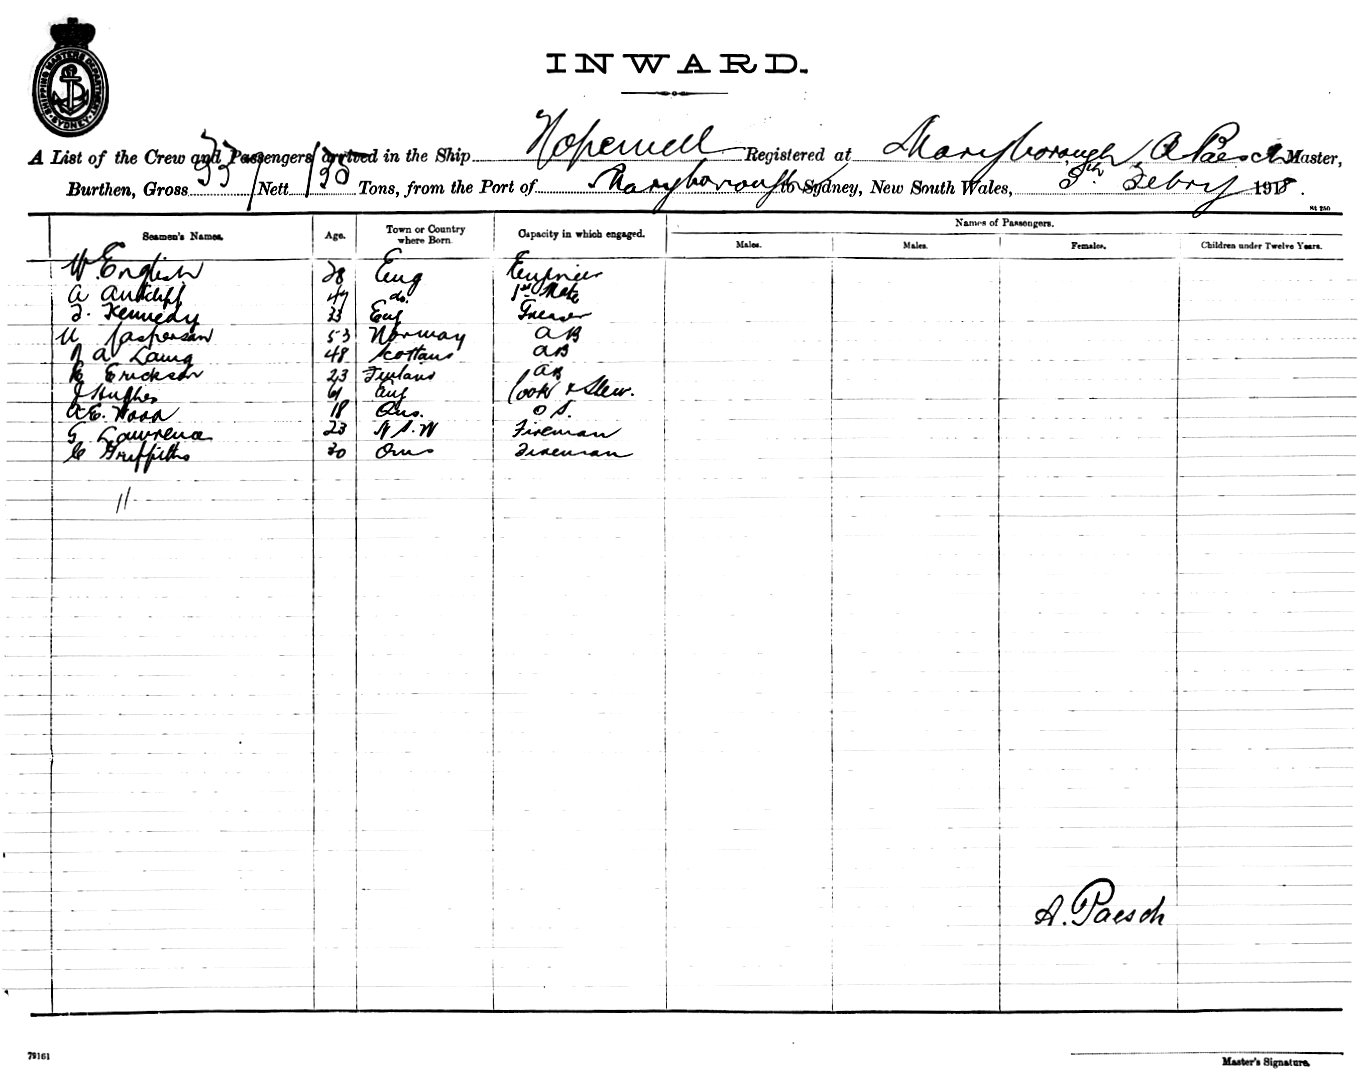 SHIPPING MASTERS DEPARTMENT SYDNEY
INWARD.
A List of the Crew and Passengers arrived in the Ship Hopewell Registered at Maryborough, A Paesch Master,
Burthen, Gross 337 Nett 135 Tons, from the Port of Maryborough to Sydney, New South Wales, 5th Febry 1918.
Seamen's Names. Age. Town or Country where Born Capacity in which engaged. Names of Passengers.
Males. Males. Females. Children under Twelve Years.
W. English 28 Eng Engineer
A 47 do. 1st Mate
J. Kennedy 33 Eng Greaser
Jasperson 53 Norway AB
A Laing 48 Scotland AB
K Erickson 23 Finland AB
J Hughes 61 Cook & Stew.
A E. Wood 18 O S.
G Lawrence 23 N S. W Fireman
C Griffiths 30 Fireman
11
A. Paesch
79161
Master's Signature.